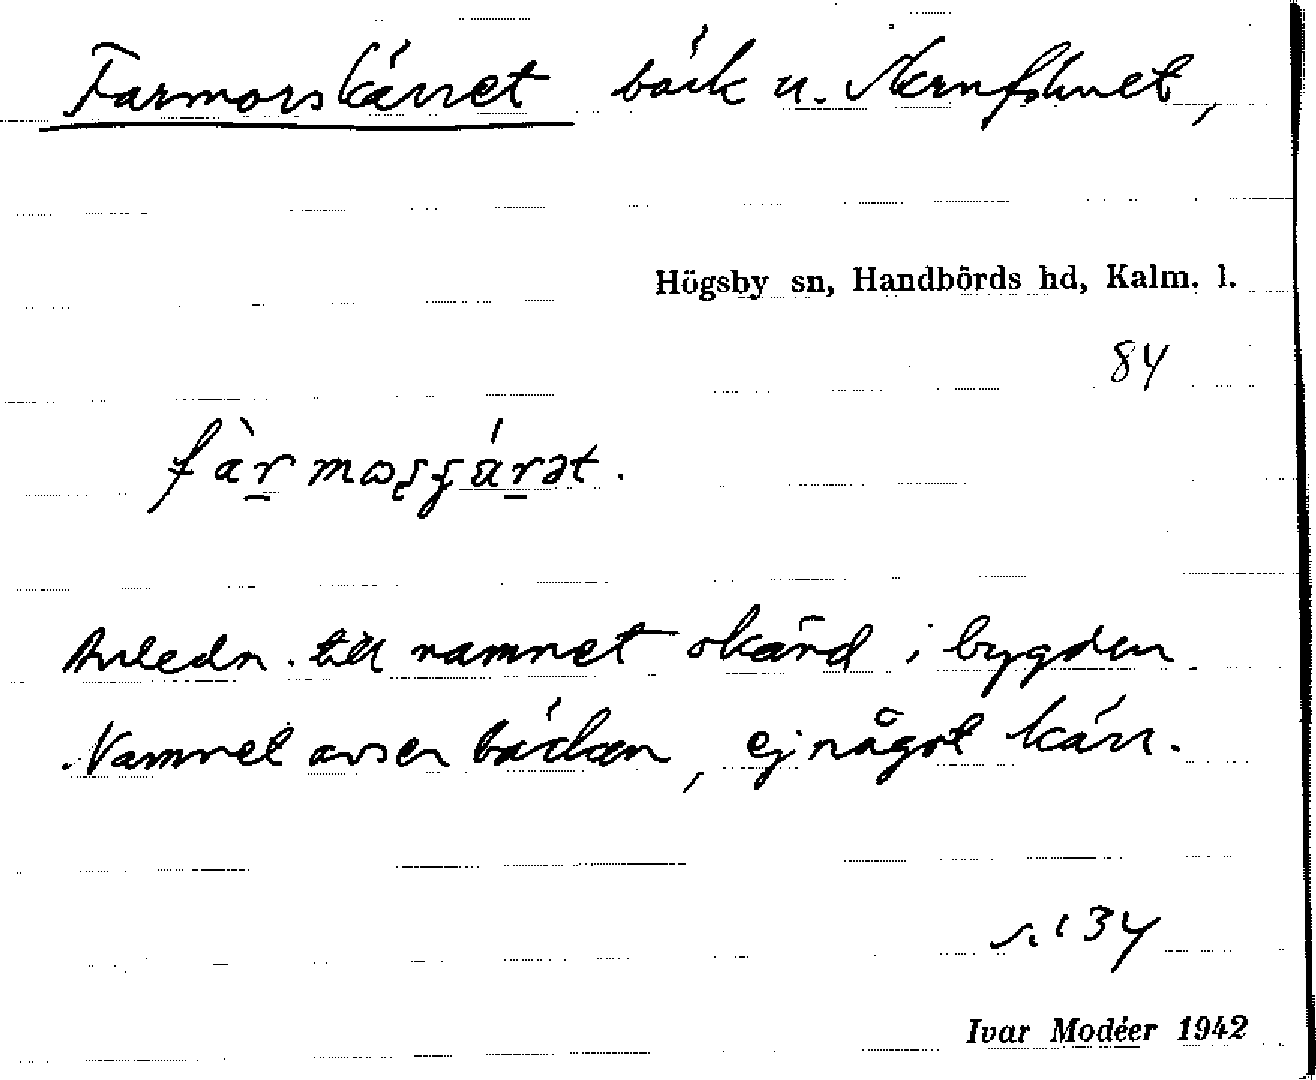 Farmorskärret bäck u.
Högsby sn, Handbörds hd, Kalm. l.
84
Anledn. till namnet okänd i bygden.
Namnet avser bäcken, ej något kärr.
s. 134
Ivar Modéer 1942